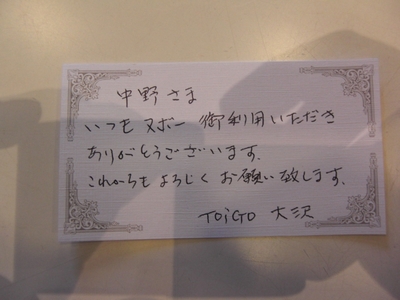 中野さま
いつもヌボー御利用いただき
ありがとうございます.
これからもよろしくお願い致します.
TOiGO 大沢